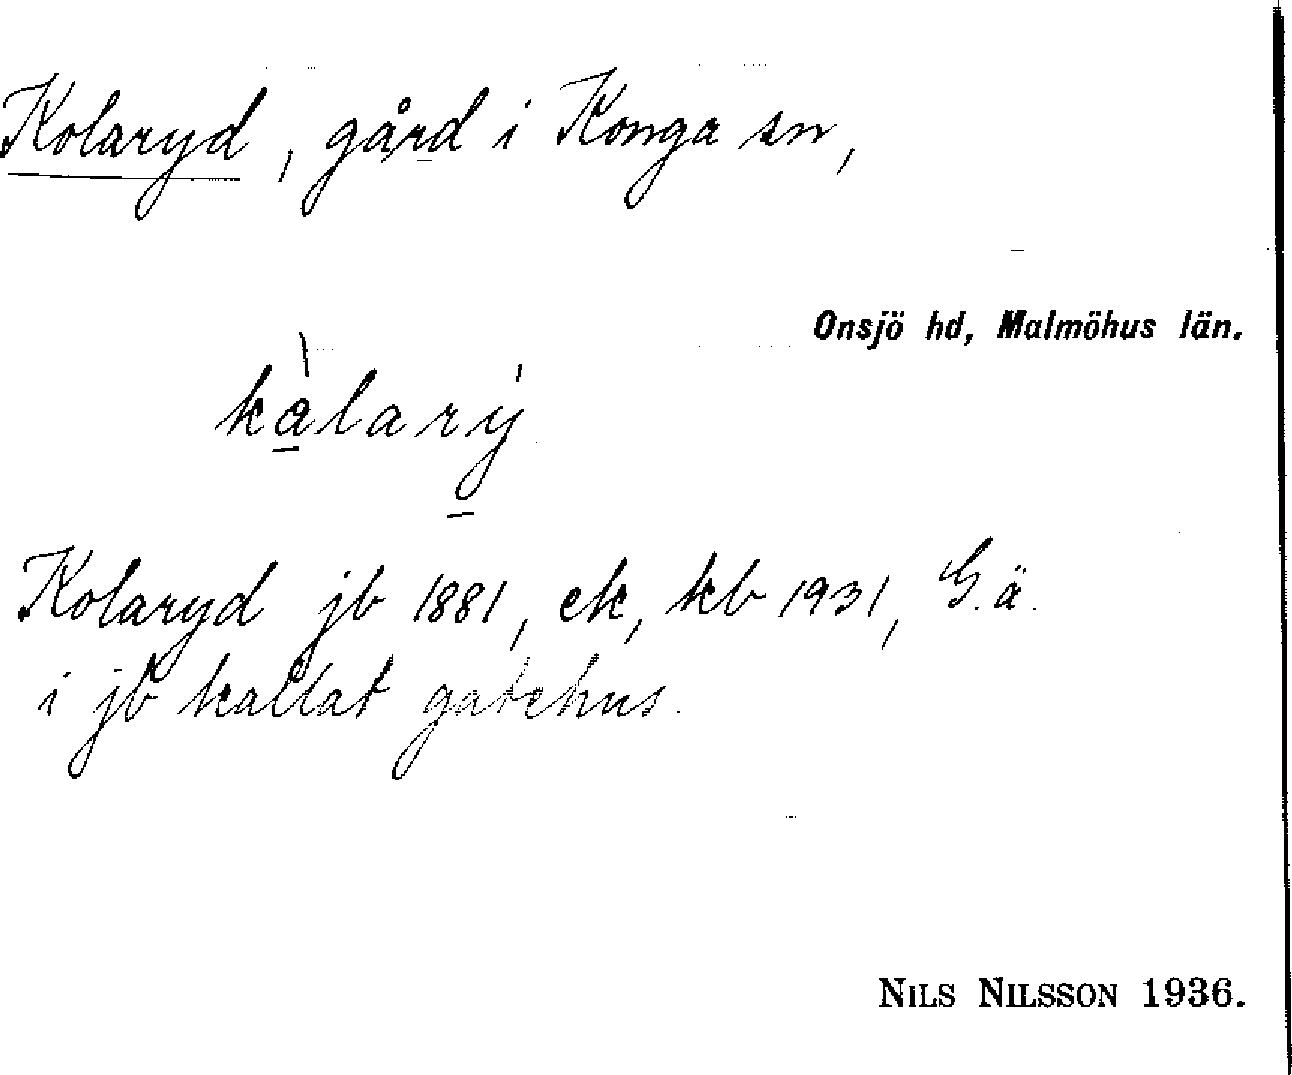 Kolaryd, gård i Konga sn,
Onsjö hd, Malmöhus län.
kàlarý
Kolaryd jb 1881, ek, kb 1931, G.ä.
i jb kallat gatehus.
NILS NILSSON 1936.